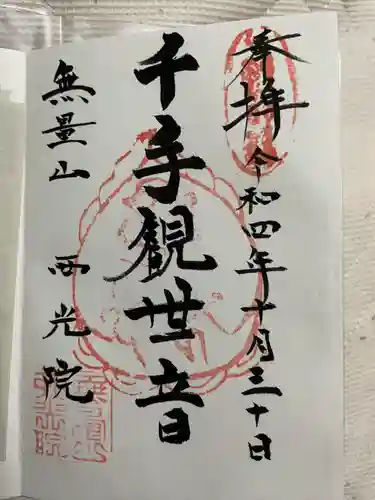 奉拝
令和四年十月三十日
千手観世音
無量山
西光院